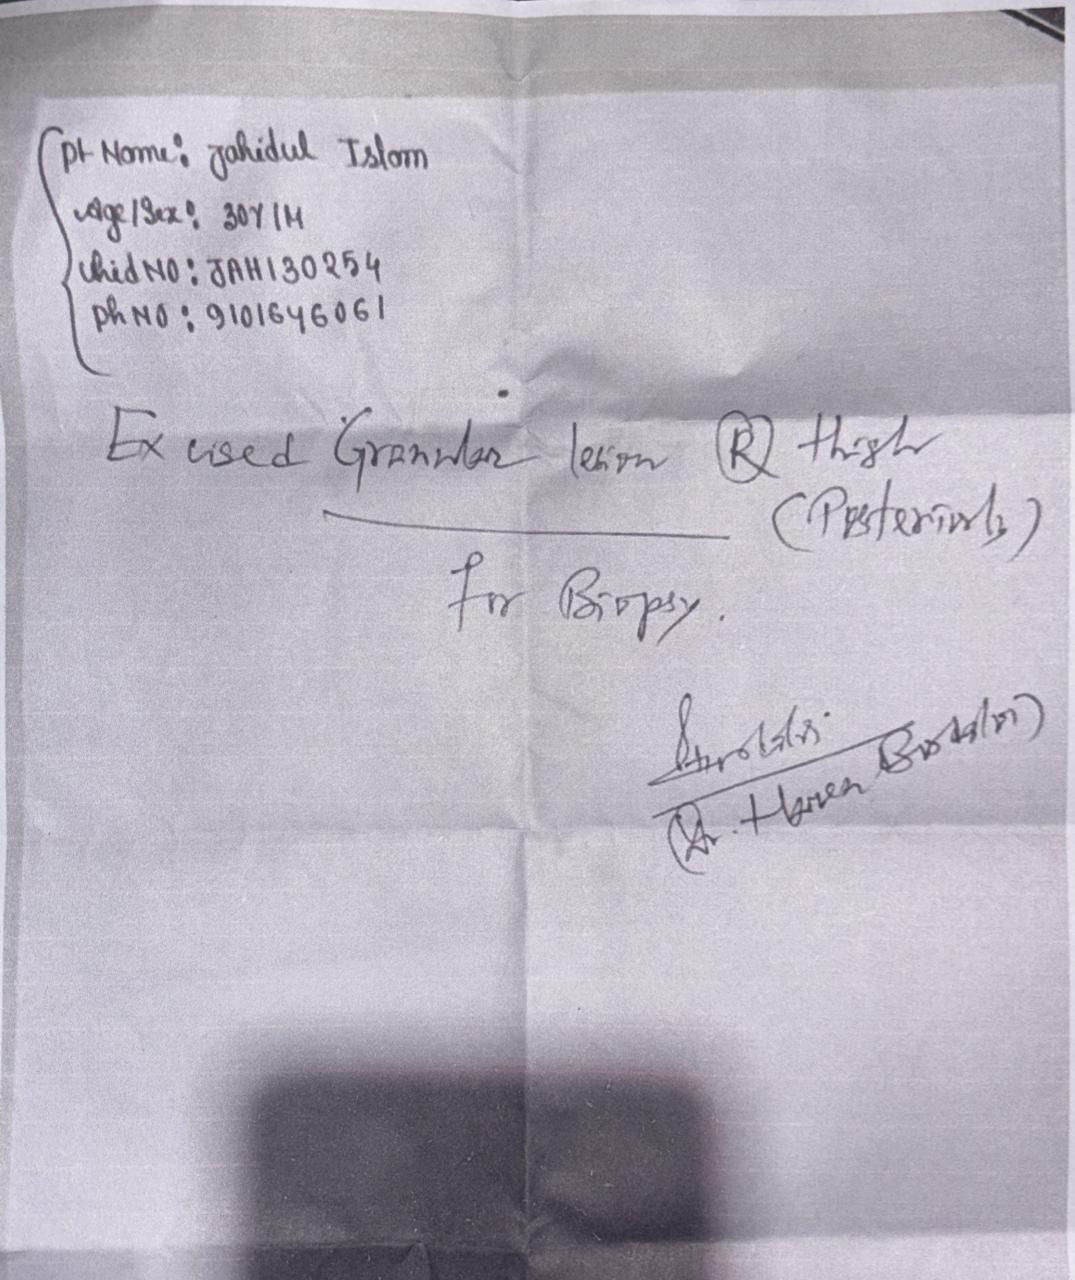 Pt Name: Jahidul Islam
Age/Sex: 30Y/M
Uhid NO: JAH130254
Ph NO: 9101646061
Excised Granular lesion (R) thigh
(Posteriorly)
For Biopsy.
(Dr. Haren